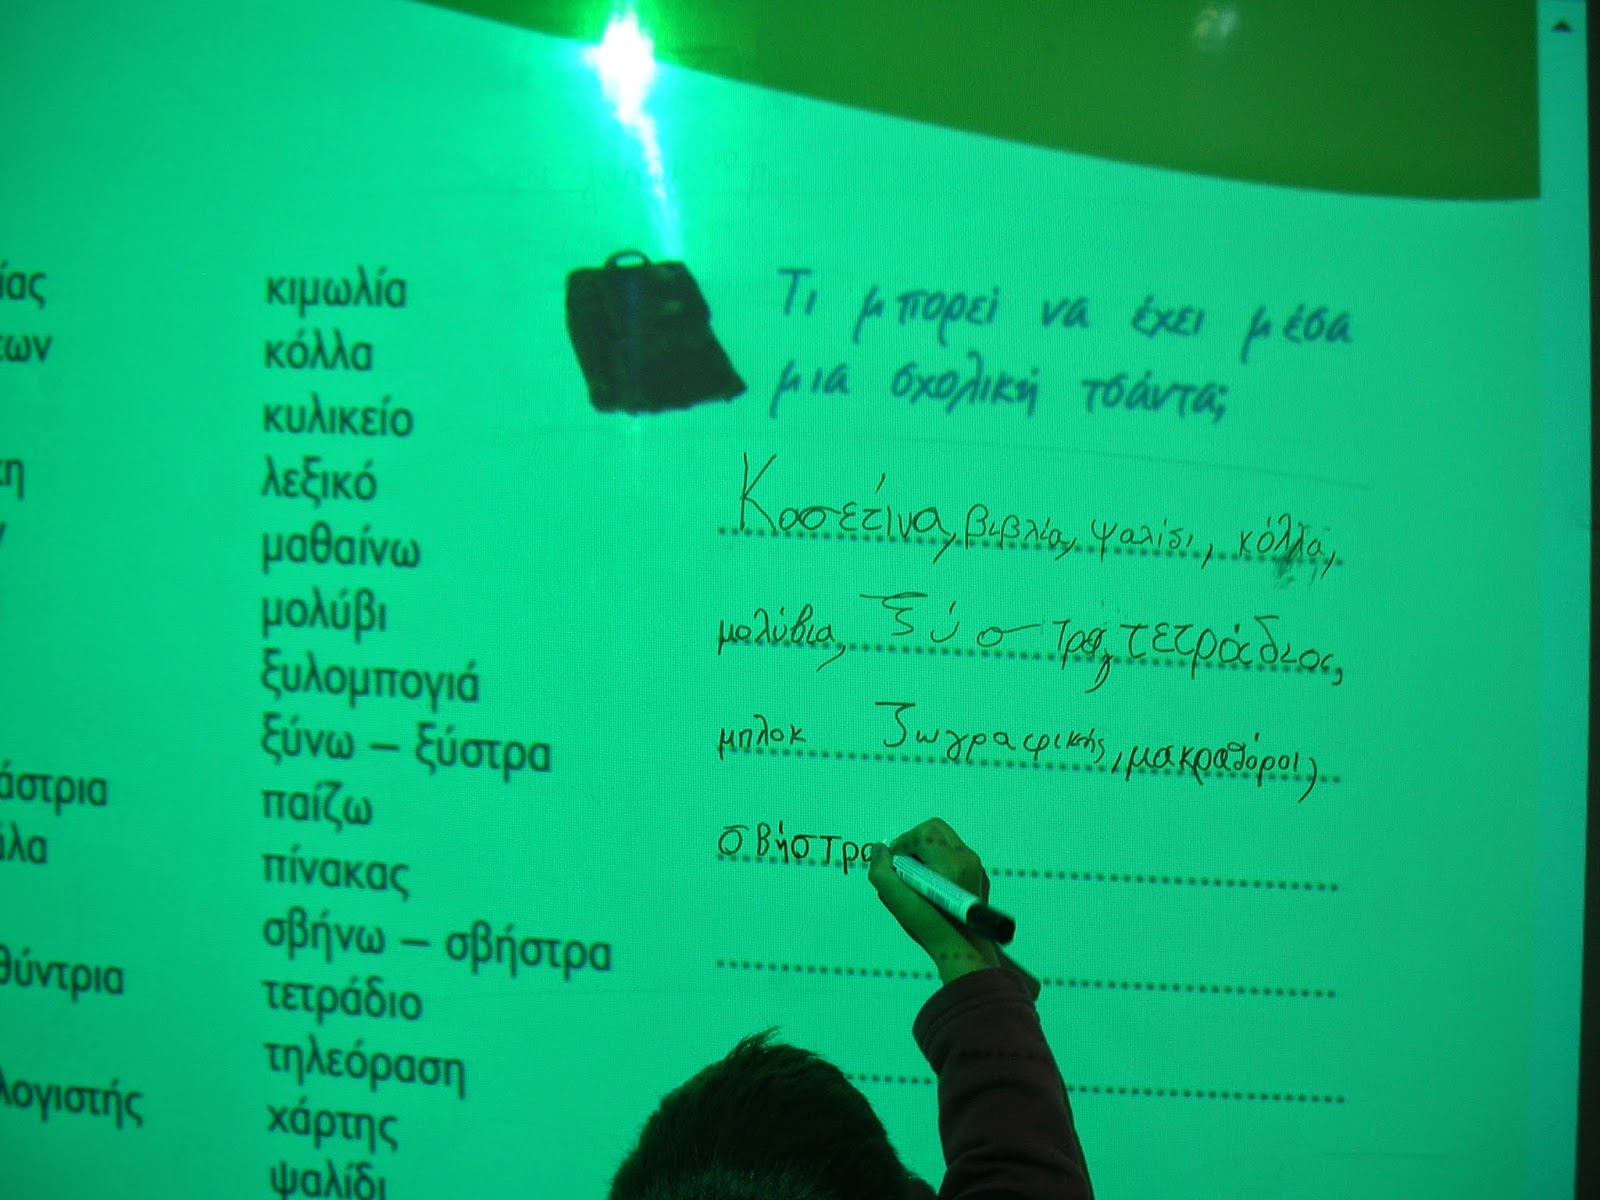 ίας
των
κη
άστρια
άλα
θύντρια
λογιστής
κιμωλία
κόλλα
κυλικείο
λεξικό
μαθαίνω
μολύβι
ξυλομπογιά
ξύνω – ξύστρα
παίζω
πίνακας
σβήνω – σβήστρα
τετράδιο
τηλεόραση
χάρτης
ψαλίδι
Τι μπορεί να έχει μέσα
μια σχολική τσάντα;
Κασετίνα, βιβλία, ψαλίδι, κόλλα,
μολύβια, ξύστρα, τετράδιο,
μπλοκ ζωγραφικής, μακραθόροι,
σβήστρα